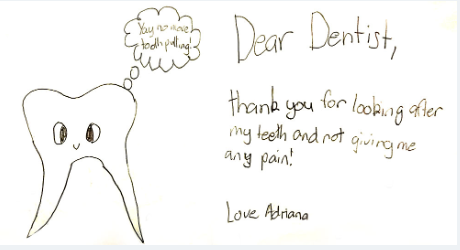 Yay no more
tooth pulling!
Dear Dentist,
thank you for looking after
my teeth and not giving me
any pain!
Love Adriana